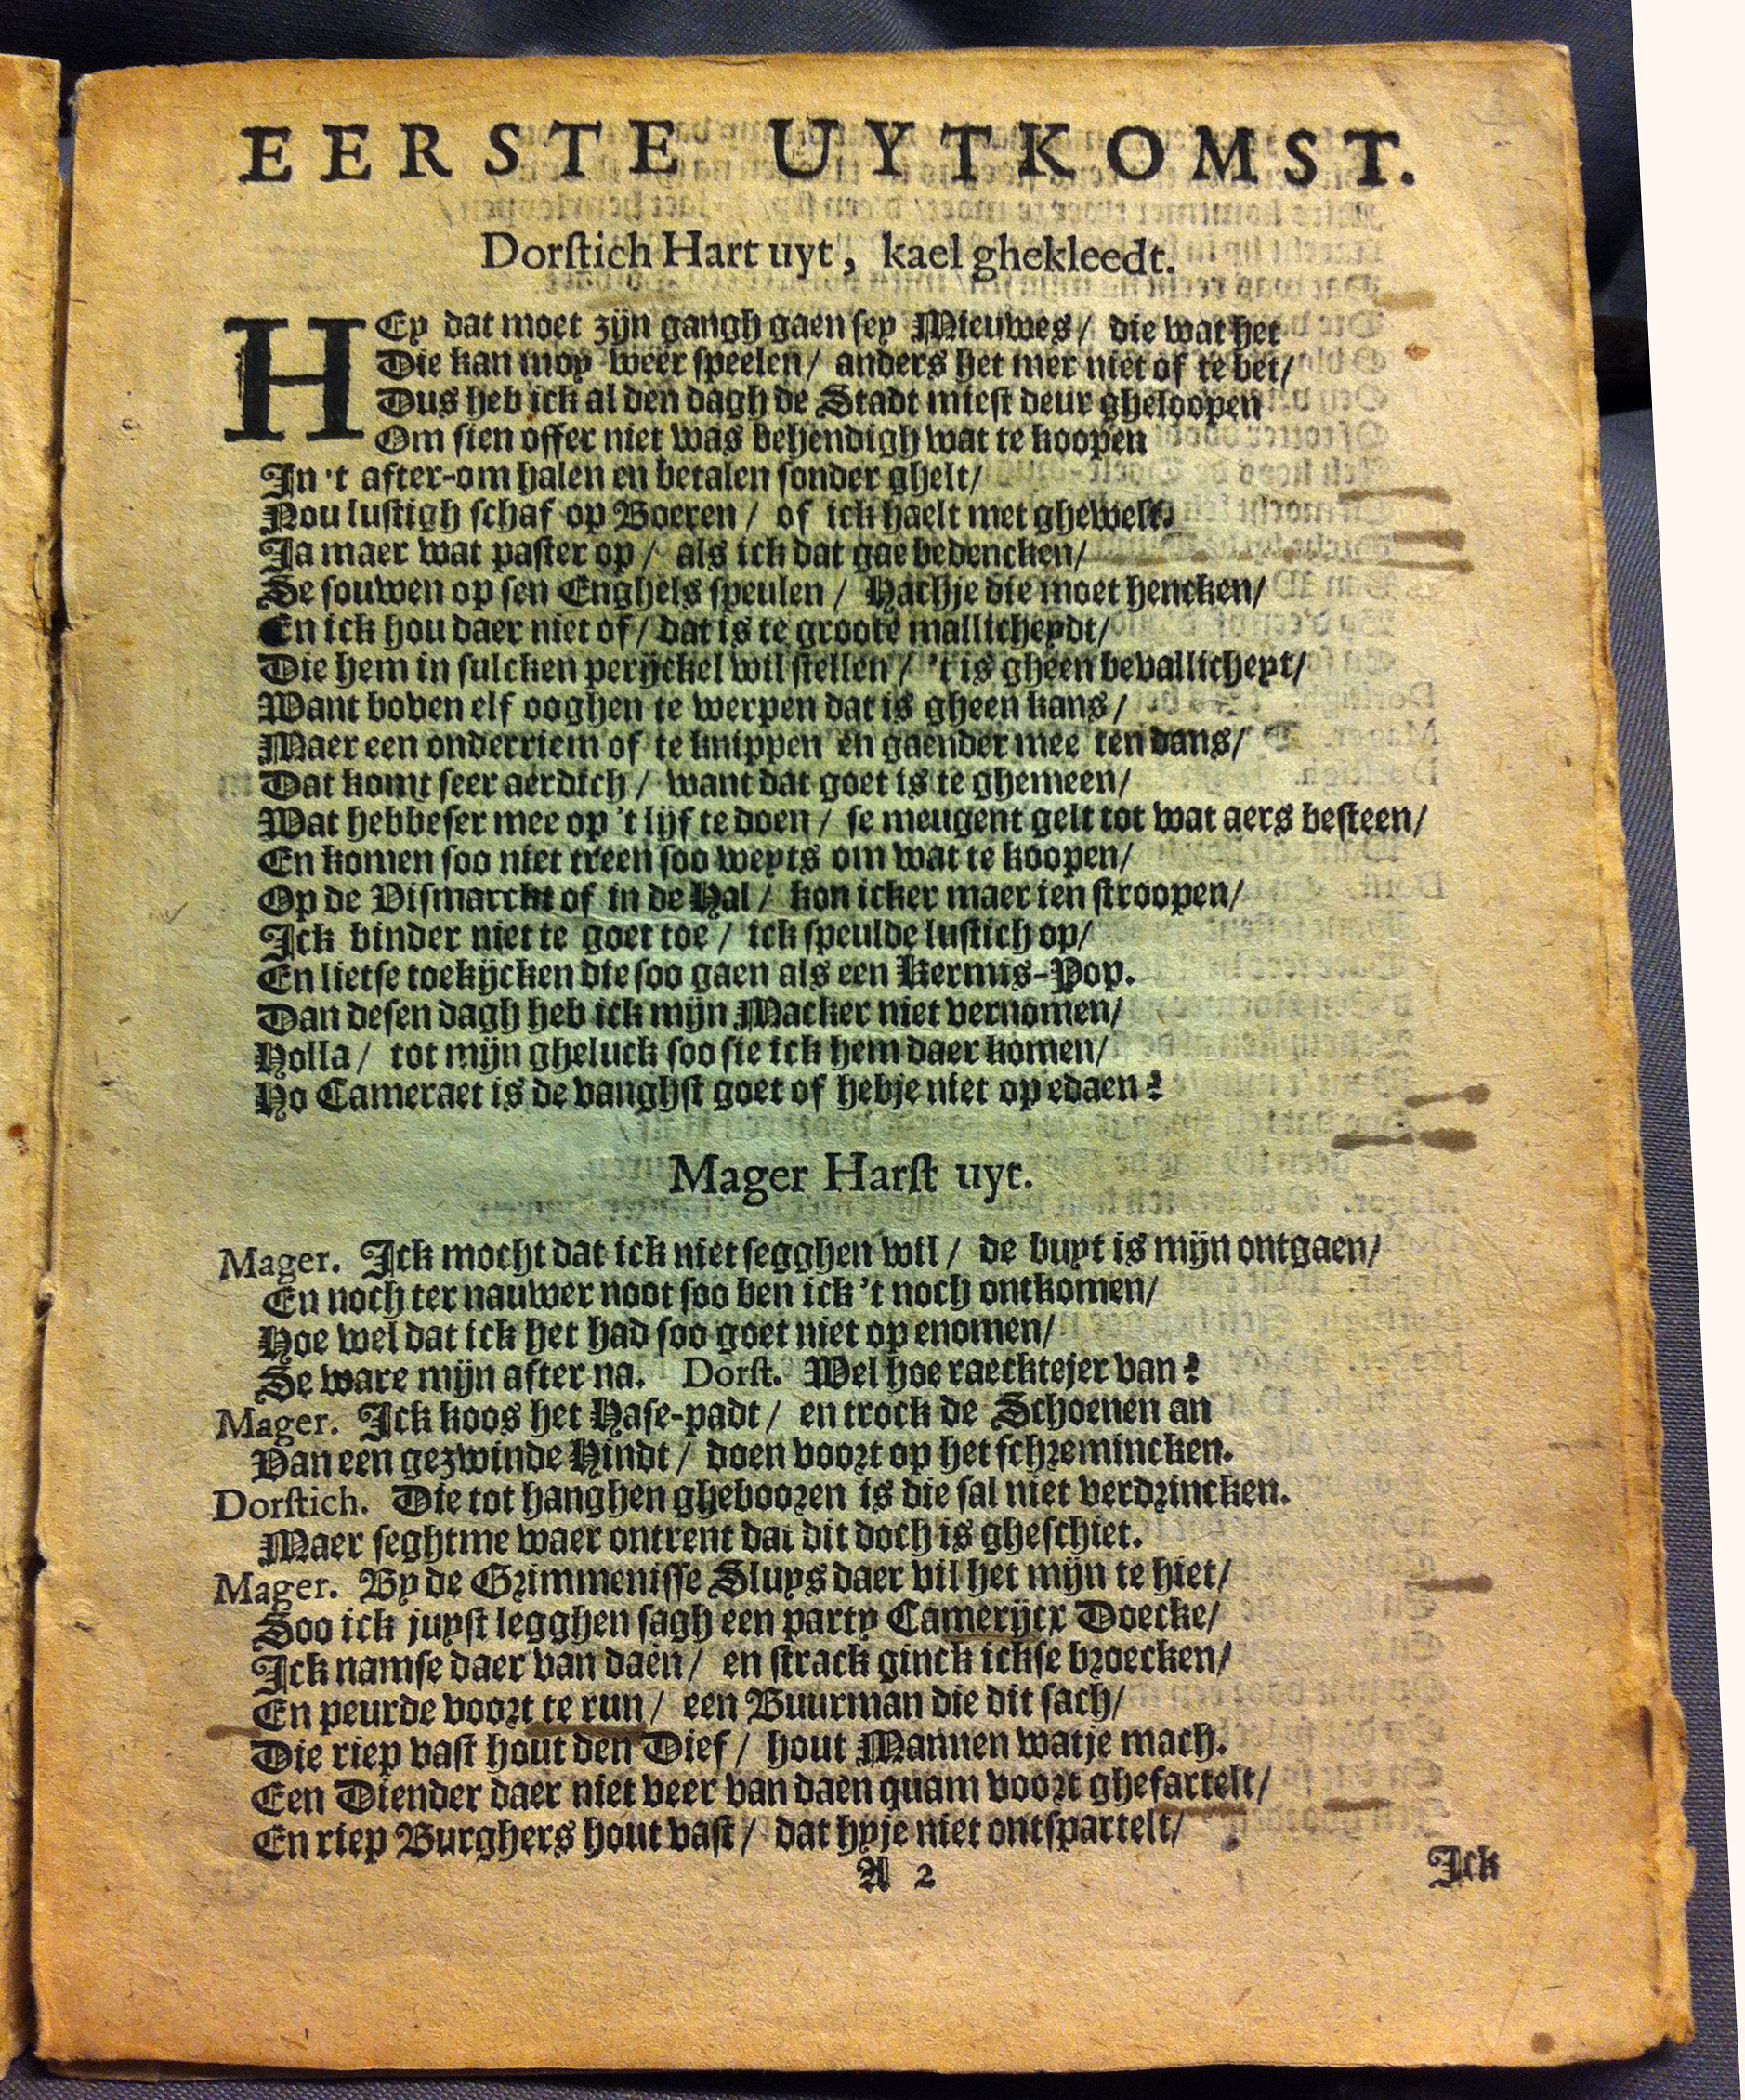 EERSTE UYTKOMST.
Dorstich Hart uyt, kael ghekleedt.
HEy dat moet zijn gangh gaen sey Nieuwes / die wat het
Die kan moy weer speelen / anders het mer niet of te bet /
Dus heb ick al den dagh de Stadt miest deur gheloopen
Om sien offer niet was behendigh wat te koopen
In 't after-om halen en betalen sonder ghelt /
Nou lustigh schaf op Boeren / of ick haelt met ghewelt.
Ja maer wat paster op / als ick dat gae bedencken /
Se souwen op sen Enghels speulen / Hachje die moet hencken /
En ick hou daer niet of / dat is te groote mallicheydt /
Die hem in sulcken perijckel wil stellen / 't is gheen bevallicheyt /
Want boven elf ooghen te werpen dat is gheen kans /
Maer een onderriem of te knippen en gaender mee ten dans /
Dat komt seer aerdich / want dat goet is te ghemeen /
Wat hebbeser mee op 't lijf te doen / se meugent gelt tot wat aers besteen /
En komen soo niet treen soo weyts om wat te koopen /
Op de Vismarckt of in de Hal / kon icker maer ien stroopen /
Ick binder niet te goet toe / ick speulde lustich op /
En lietse toekijcken die soo gaen als een Kermis-Pop.
Dan desen dagh heb ick mijn Macker niet vernomen /
Holla / tot mijn gheluck soo sie ick hem daer komen /
Ho Cameraet is de vanghst goet of hebje niet op edaen?
Mager Harst uyt.
Mager. Ick mocht dat ick niet segghen wil / de buyt is mijn ontgaen /
En noch ter nauwer noot soo ben ick 't noch ontkomen /
Hoe wel dat ick het had soo goet niet op enomen /
Se ware mijn after na. Dorst. Wel hoe raecktejer van?
Mager. Ick koos het Hase-padt / en trock de Schoenen an
Van een gezwinde Hindt / doen voort op het schremincken.
Dorstich. Die tot hanghen ghebooren is die sal niet verdrincken.
Maer seghtme waer ontrent dat dit doch is gheschiet.
Mager. By de Grimmenisse Sluys daer vil het mijn te hiet /
Soo ick juyst legghen sagh een party Camerijcx Doecke /
Ick namse daer van daen / en strack ginck ickse broecken /
En peurde voort te run / een Buurman die dit sach /
Die riep vast hout den Dief / hout Mannen watje mach.
Een Diender daer niet veer van daen quam voort ghefartelt /
En riep Burghers hout vast / dat hyje niet ontspartelt /
A 2
Ick